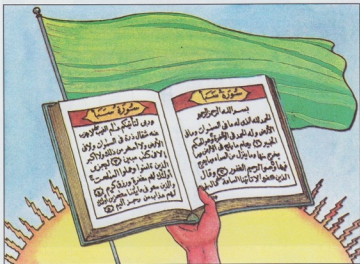 سورة سبأ
بسم الله الرحمن الرحيم
الحمد لله الذى له ما فى السموات وما فى
الأرض وله الحمد فى الآخرة وهو الحكيم
الخبير ① يعلم ما يلج فى الأرض وما
يخرج منها وما ينزل من السماء وما يعرج
فيها وهو الرحيم الغفور ② وقال
الذين كفروا لا تأتينا الساعة قل بلى
سورة سبأ
وربى لتأتينكم عالم الغيب لا يعزب
عنه مثقال ذرة فى السموات ولا فى
الأرض ولا أصغر من ذلك ولا أكبر
إلا فى كتاب مبين ③ ليجزى
الذين ءامنوا وعملوا الصالحات
أولئك لهم مغفرة ورزق كريم ④
والذين سعو فى آياتنا معاجزين أولئك
لهم عذاب من رجز أليم ⑤